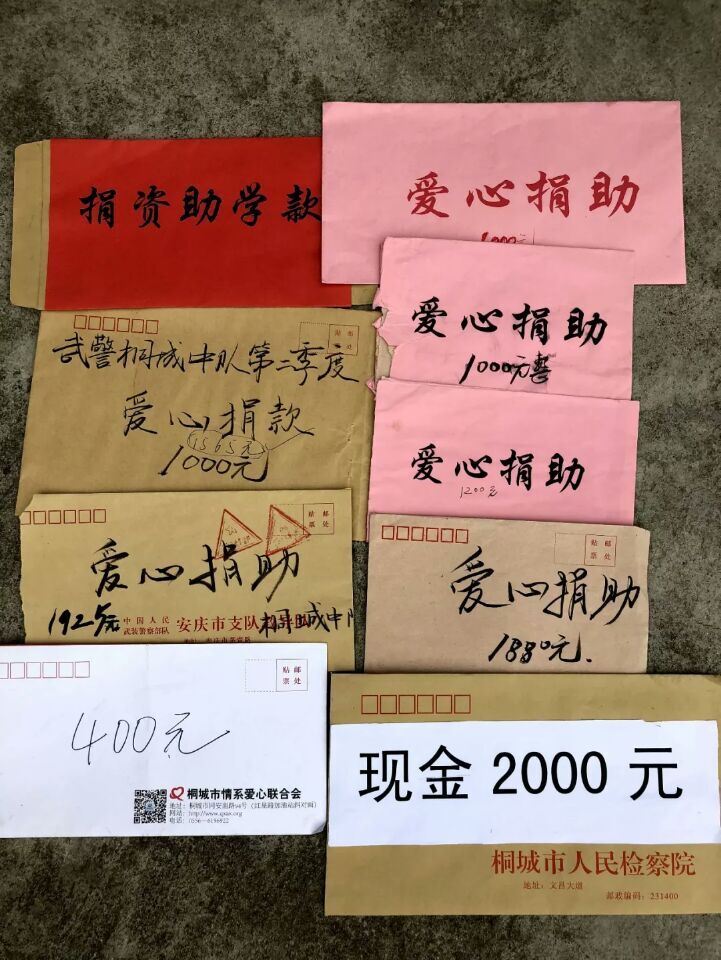 捐资助学款
爱心捐助
1000元
爱心捐助
1000元整
贴邮
票处
武警桐城中队第二季度
爱心捐款
1565元
1000元
爱心捐助
1200元
贴邮
票处
爱心捐助
192
中国人民
武装警察部队
安庆市支队
桐城中队
贴邮
票处
爱心捐助
1880元.
贴邮
票处
400元
桐城市情系爱心联合会
地址：桐城市同安南路94号（红星路加油站斜对面）
电话：0556—6196922
现金 2000 元
桐城市人民检察院
地址：文昌大道
邮政编码：231400